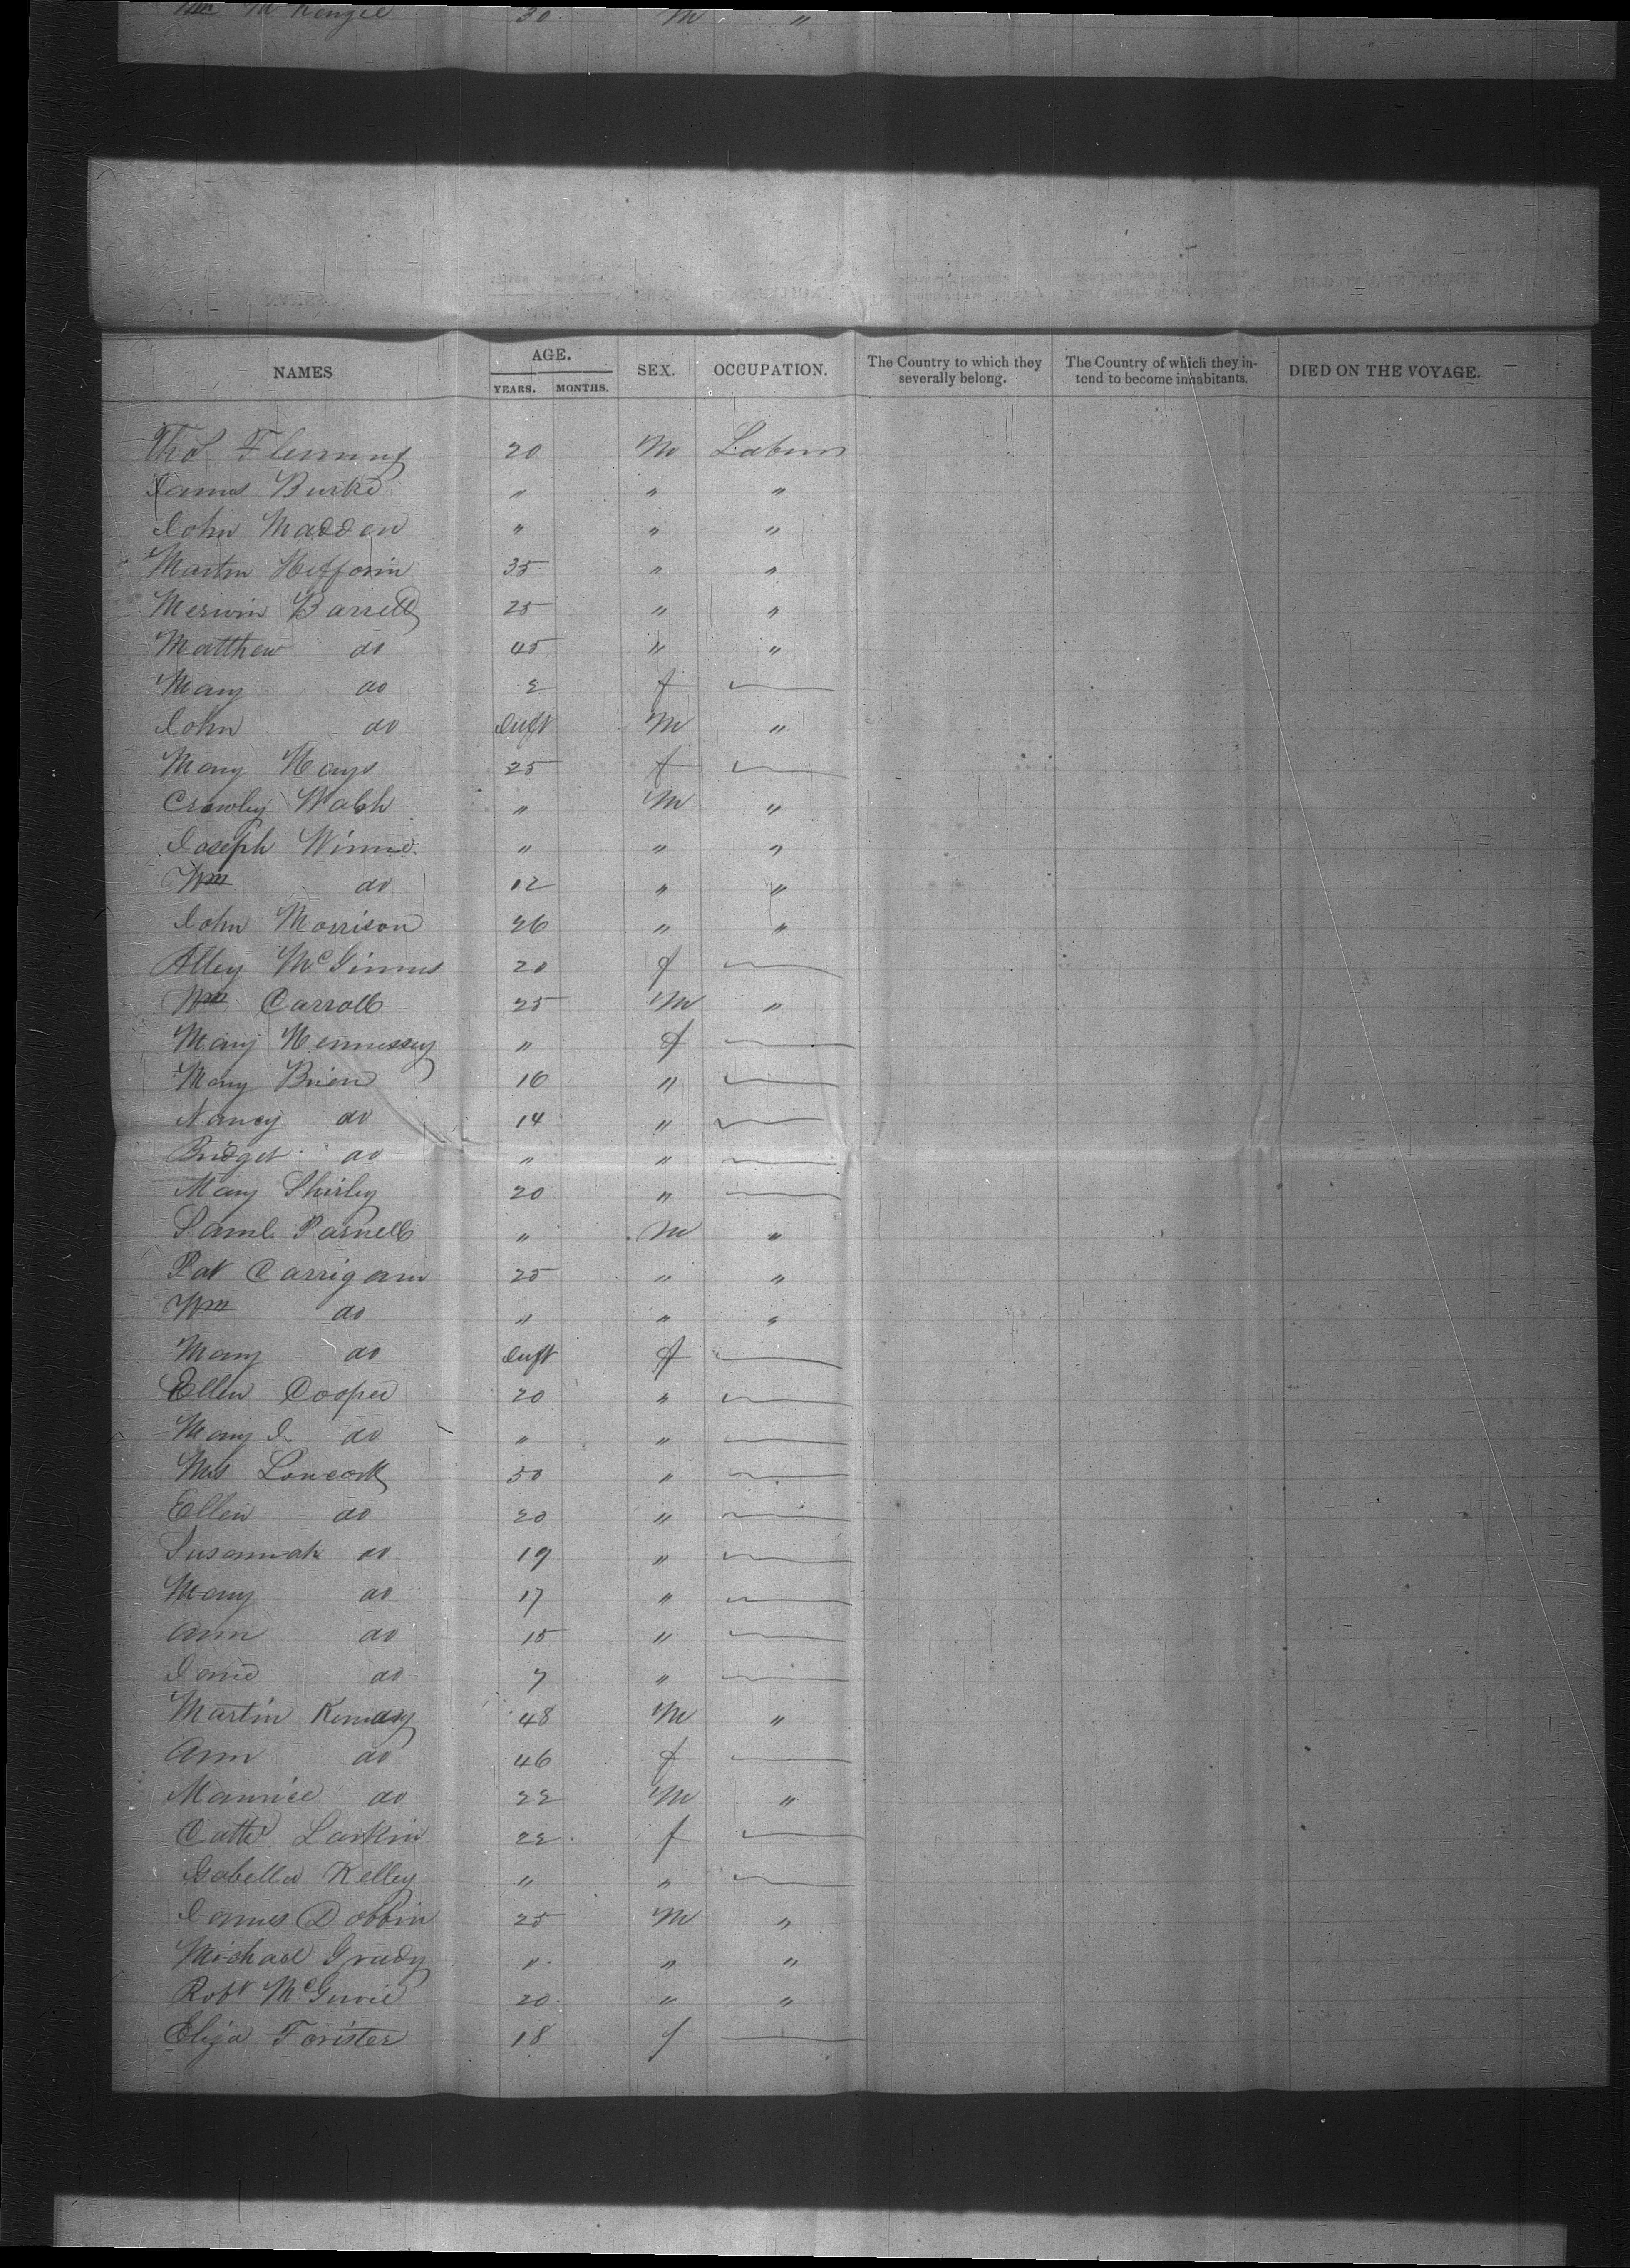 Wm McKenzie 30 M "
NAMES AGE. YEARS. MONTHS. SEX. OCCUPATION. The Country to which they severally belong. The Country of which they intend to become inhabitants. DIED ON THE VOYAGE.
Thos Fleming 20 M Labour
James Burke " " "
John Madden " " "
Martin Hefforin 35 " "
Merwin Barrell 25 " "
Matthew do 45 " "
Mary do 2 f
John do Inft M "
Mary Hays 25 f
Crowley Walsh " M "
Joseph Winne " " "
Wm do 12 " "
John Morrison 26 " "
Alley McGinnis 20 f
Wm Carroll 25 M "
Mary Hennessey " f
Mary Brien 16 "
Nancy do 14 "
Bridget do " "
Mary Shirley 20 "
Saml. Parnell " M "
Pat Carrigann 25 " "
Wm do " " "
Mary do Inft f
Ellen Cooper 20 "
Mary J. do " "
Mrs 50 "
Ellen do 20 "
Susannah do 19 "
Mary do 17 "
Ann do 15 "
Jane do 7 "
Martin Kennedy 48 M "
Ann do 46 f
Maurice do 22 M "
Cathe Larkin 22 f
Isabella Kelley " "
James Dobbin 25 M "
Michael Grady " " "
Robt 20 " "
Eliza Forister 18 f